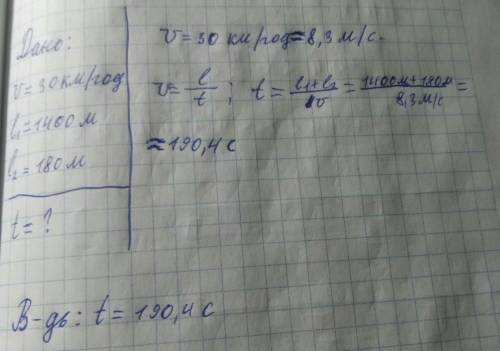 Дано:
v = 30 км/год
l₁ = 1400 м
l₂ = 180 м
t = ?
v = 30 км/год ≈ 8,3 м/с.
v = l/t ; t = (l₁+l₂)/v = (1400м+180м)/(8,3 м/с) =
≈ 190,4 с
В-дь: t = 190,4 с